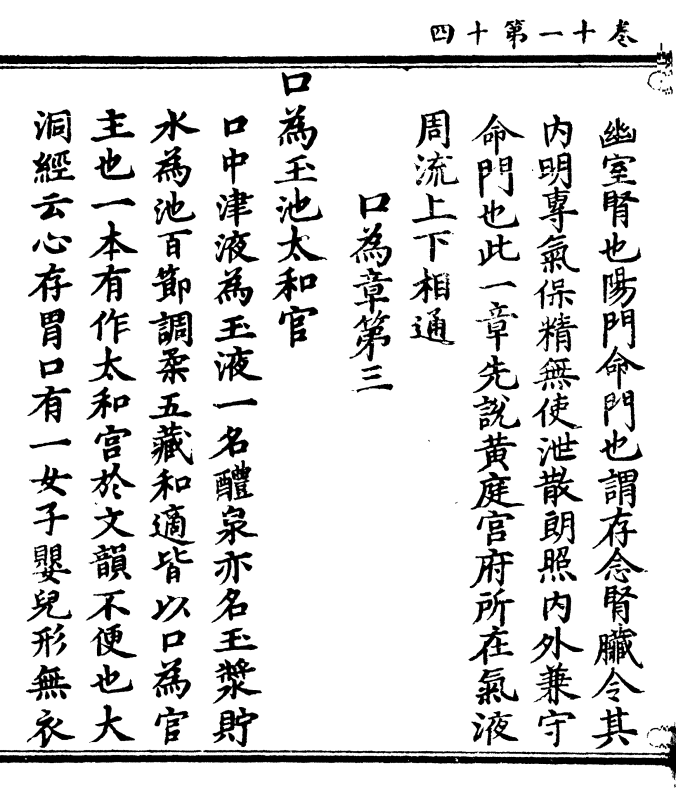 卷十一第十四
幽室腎也陽門命門也謂存念腎臟令其
内明專氣保精無使泄散朗照内外兼守
命門也此一章先說黃庭官府所在氣液
周流上下相通
口為章第三
口為玉池太和官
口中津液為玉液一名醴泉亦名玉漿貯
水為池百節調柔五藏和適皆以口為官
主也一本有作太和宫於文韻不便也大
洞經云心存胃口有一女子嬰兒形無衣